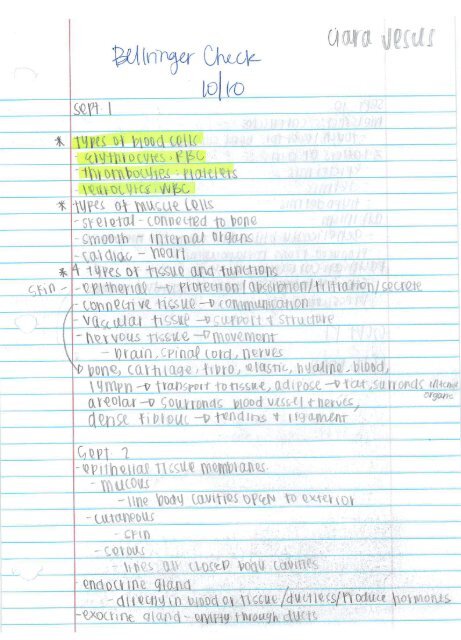 Ciara Jesus
Bellringer Check
10/10
Sept. 1
* types of blood cells
- erythrocytes · RBC
- thrombocytes · platelets
- leukocytes · WBC
* types of muscle cells
- skeletal - connected to bone
- smooth - internal organs
- cardiac - heart
* 4 types of tissue and functions
skin - - epithelial → protection/absorbtion/filtration/secrete
- connective tissue → communication
- vascular tissue → support + structure
- nervous tissue → movement
- brain, spinal cord, nerves
→ bone, cartilage, fibro, elastic, hyaline, blood,
lymph → transport to tissue, adipose → fat, surronds internal organs
areolar → sourronds blood vessel + nerves,
dense fibrous → tendins + ligament
Sept. 2
- epithelial tissue membranes
- mucous
- line body cavities OPEN to exterior
- cutaneous
- skin
- serous
- lines all closed body cavities
- endocrine gland
- directly in blood or tissue/ductless/produce hormones
- exocrine gland - empty through ducts